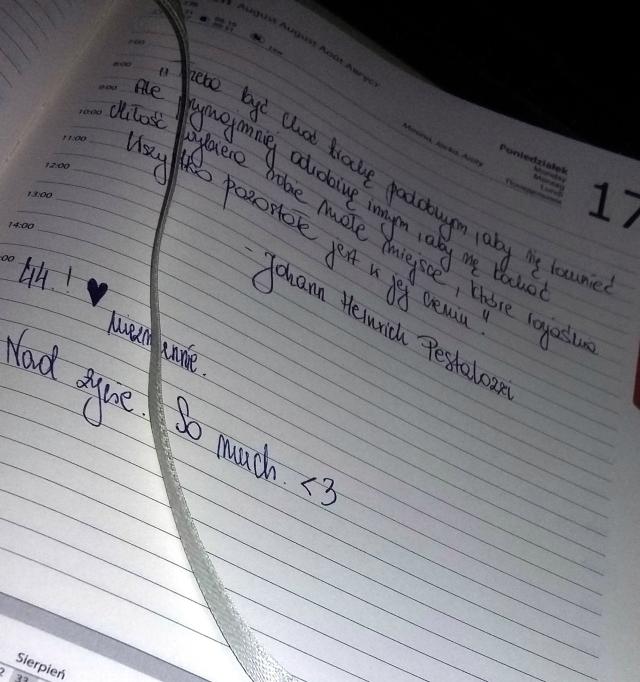 August August Août Август
Poniedziałek
Monday
17
7:00
8:00
9:00
10:00
11:00
12:00
13:00
14:00
"Trzeba być choć trochę podobnym, aby się rozumieć
Ale przynajmniej odrobinę innym, aby się kochać
Miłość wybiera sobie małe miejsce, które rozjaśnia
Wszystko pozostałe jest w jej cieniu"
- Johann Heinrich Pestalozzi
44.! ♥
Niezmiennie.
Nad życie. So much. <3
Sierpień
33